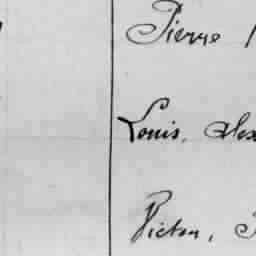 Pierre
Louis, Alex
Victor,